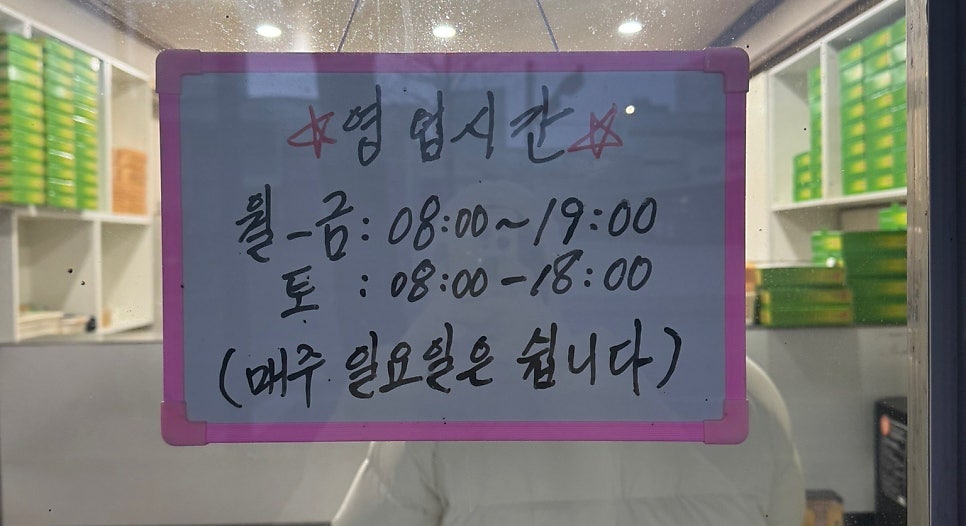 ☆영업시간☆
월-금: 08:00~19:00
토 : 08:00-18:00
(매주 일요일은 쉽니다)